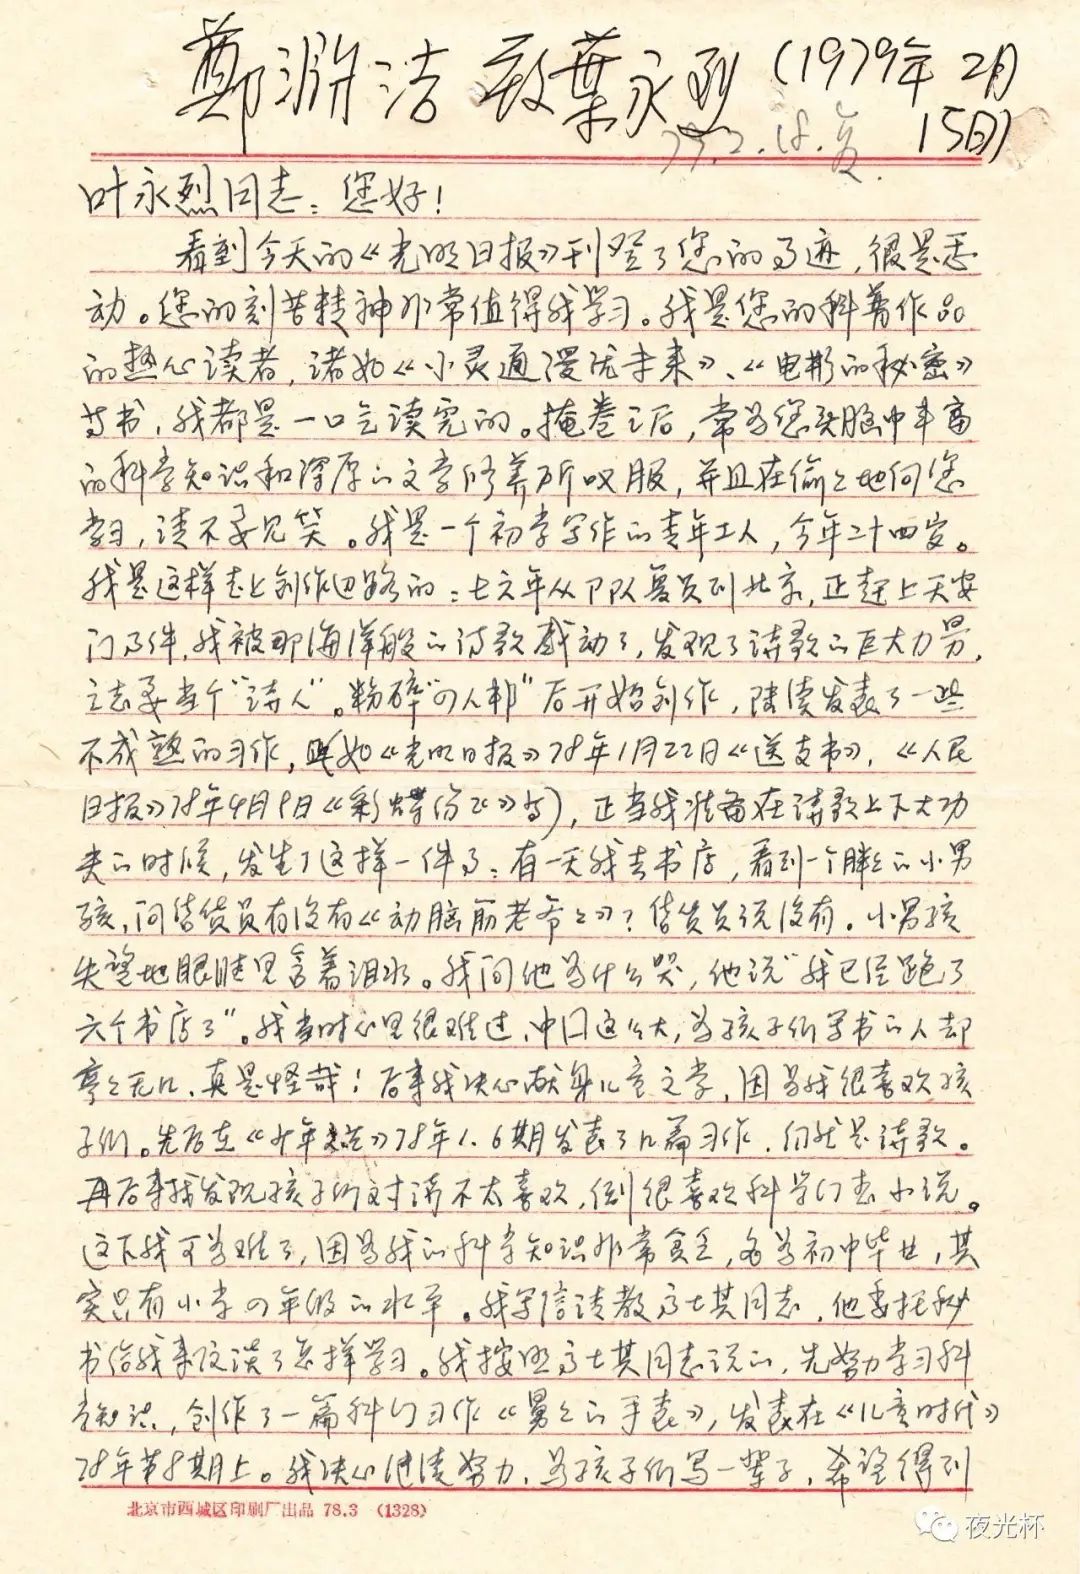 鄭渊洁致葉永烈(1979年2月
15日)
79.2.18.复.
叶永烈同志：您好！
看到今天的《光明日报》刊登了您的事迹，很是感
动。您的刻苦精神非常值得我学习。我是您的科普作品
的热心读者，诸如《小灵通漫游未来》、《电影的秘密》
等书，我都是一口气读完的。掩卷之后，常为您头脑中丰富
的科学知识和深厚的文学修养所叹服，并且在偷偷地向您
学习，请不要见笑。我是一个初学写作的青年工人，今年二十四岁。
我是这样走上创作道路的：七六年从部队复员到北京，正赶上天安
门事件，我被那海洋般的诗歌感动了，发现了诗歌的巨大力量，
立志要当个“诗人”。粉碎“四人邦”后开始创作，陆续发表了一些
不成熟的习作，(如《光明日报》78年1月22日《送支书》，《人民
日报》78年4月9日《彩蝶纷飞》等)，正当我准备在诗歌上下大功
夫的时候，发生了这样一件事：有一天我去书店，看到一个胖胖的小男
孩，问售货员有没有《动脑筋老爷爷》？售货员说没有。小男孩
失望地眼睛里含着泪水。我问他为什么哭，他说“我已经跑了
六个书店了”。我当时心里很难过，中国这么大，为孩子们写书的人却
寥寥无几，真是怪哉！后来我决心献身儿童文学，因为我很喜欢孩
子们。先后在《少年文艺》78年1.6期发表了几篇习作，仍然是诗歌。
再后来我发现孩子们对诗不太喜欢，倒很喜欢科学幻想小说。
这下我可为难了，因为我的科学知识非常贫乏，名为初中毕业，其
实只有小学四年级的水平。我写信请教高士其同志，他委托秘
书给我来信谈了怎样学习。我按照高士其同志说的，先努力学习科
学知识，创作了一篇科幻习作《舅舅的手表》，发表在《儿童时代》
78年第8期上。我决心继续努力，为孩子们写一辈子，希望得到
北京市西城区印刷厂出品 78.3 (1328)
夜光杯